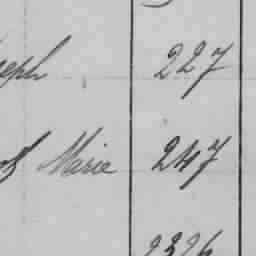 seph 227
Marie 247
2326